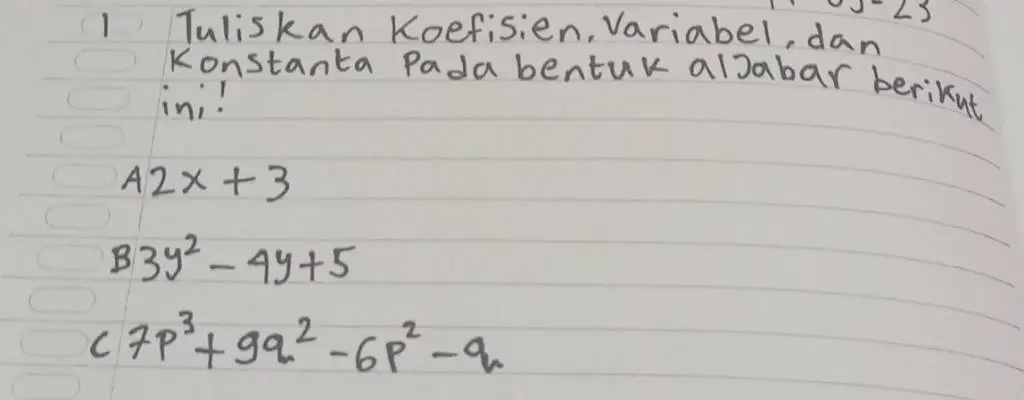 1 Tuliskan Koefisien, Variabel, dan
Konstanta Pada bentuk aljabar berikut
ini!
A 2x + 3
B 3y² - 4y + 5
C 7p³ + 9q² - 6p² - q